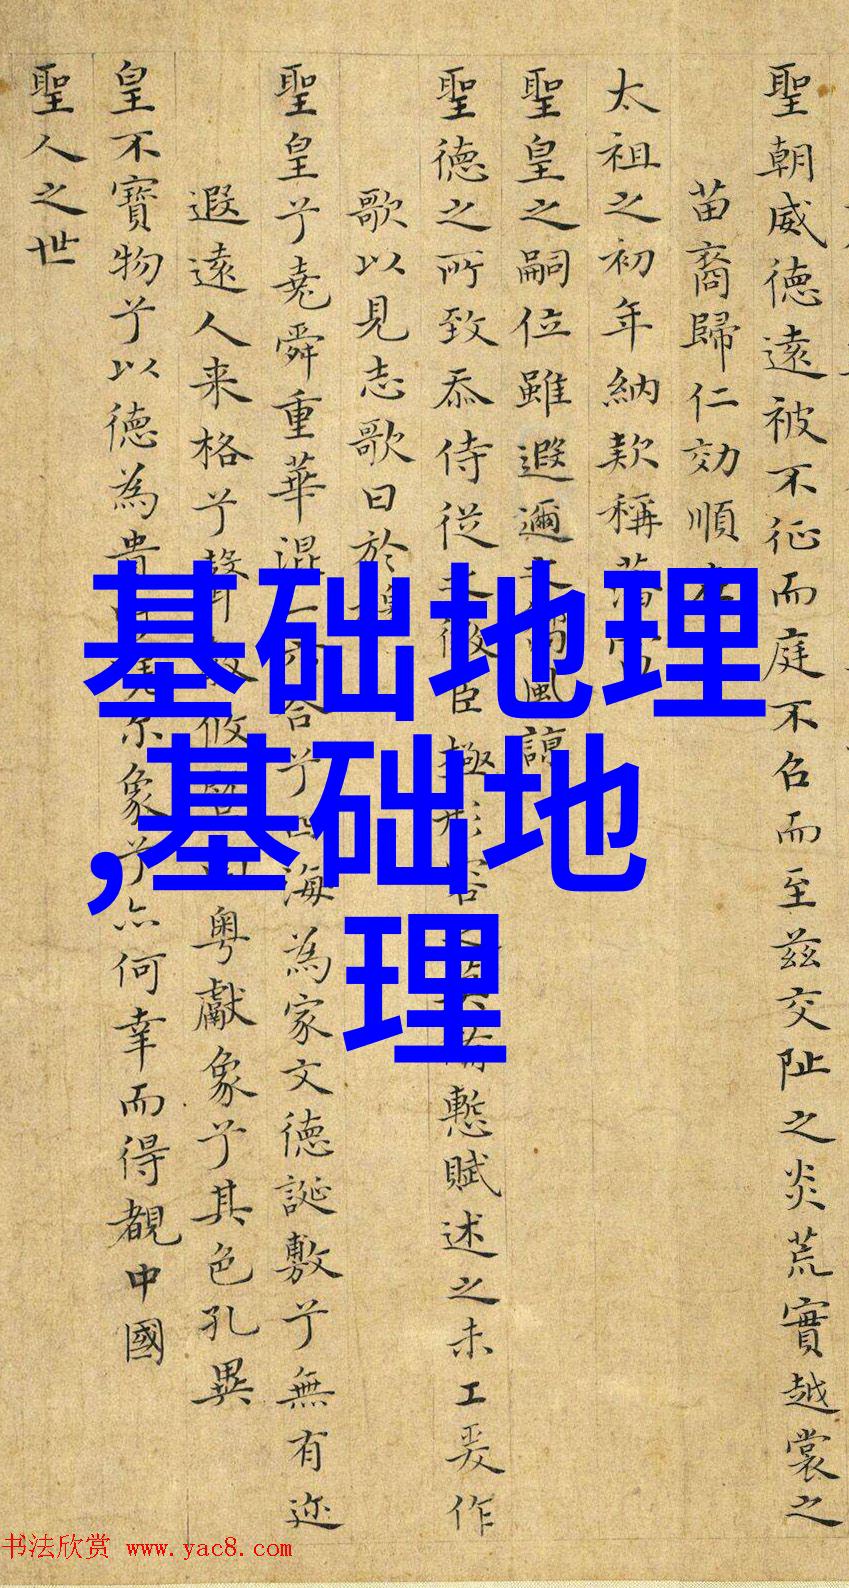 聖朝威德遠被不征而庭不召而至茲交阯之炎荒實越裳之
苗裔歸仁効順
太祖之初年納款稱藩
聖皇之嗣位雖遐邇風諒
聖德之所致忝侍從微臣極形容慙賦述之未工爰作
歌以見志歌曰於
聖皇兮堯舜重華混六合兮四海為家文德誕敷兮無有迩
遐遠人来格兮聲攸粤獻象兮其色孔異
皇不寶物兮以德為貴象兮亦何幸而得覩中國
聖人之世
基础地理
,基础地
理
书法欣赏 www.yac8.com